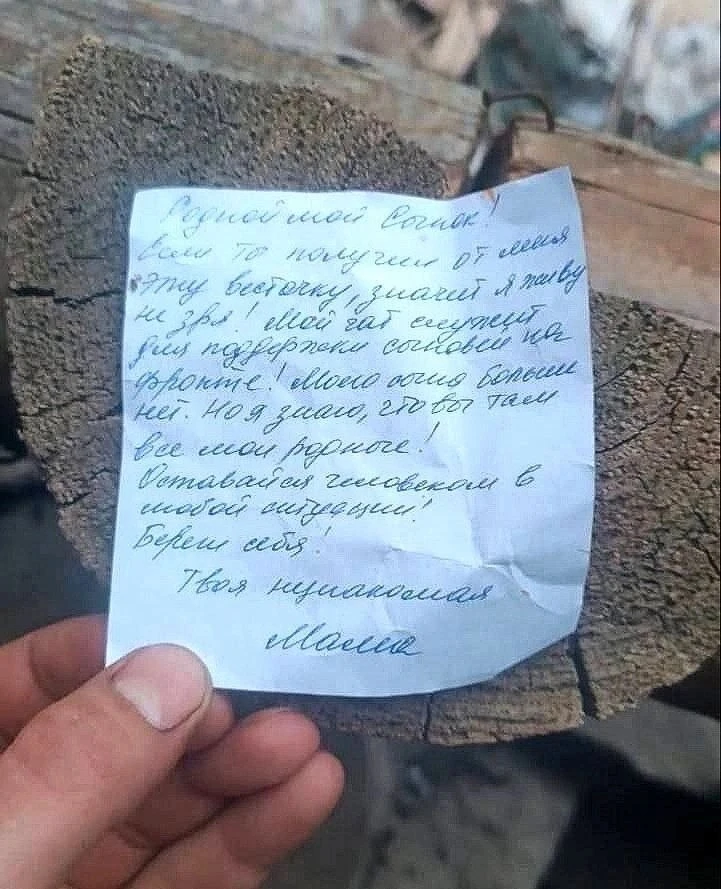 Родной мой Сынок!
Если ты получил от меня
эту весточку, значит я живу
не зря! Мой чат служит
для поддержки сыновей на
фронте! Моего сына больше
нет. Но я знаю, что вы там
все мои родные!
Оставайся человеком в
любой ситуации!
Береги себя!
Твоя незнакомая
Мама